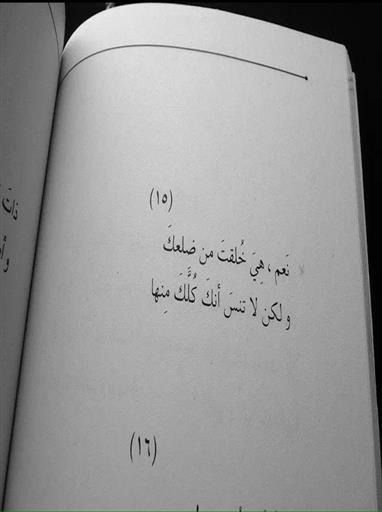 (١٥)
نَعم ، هِيَ خُلقتَ من ضلعكَ
و لكن لا تنسَ أنكَ كُلَّكَ مِنها
(١٦)